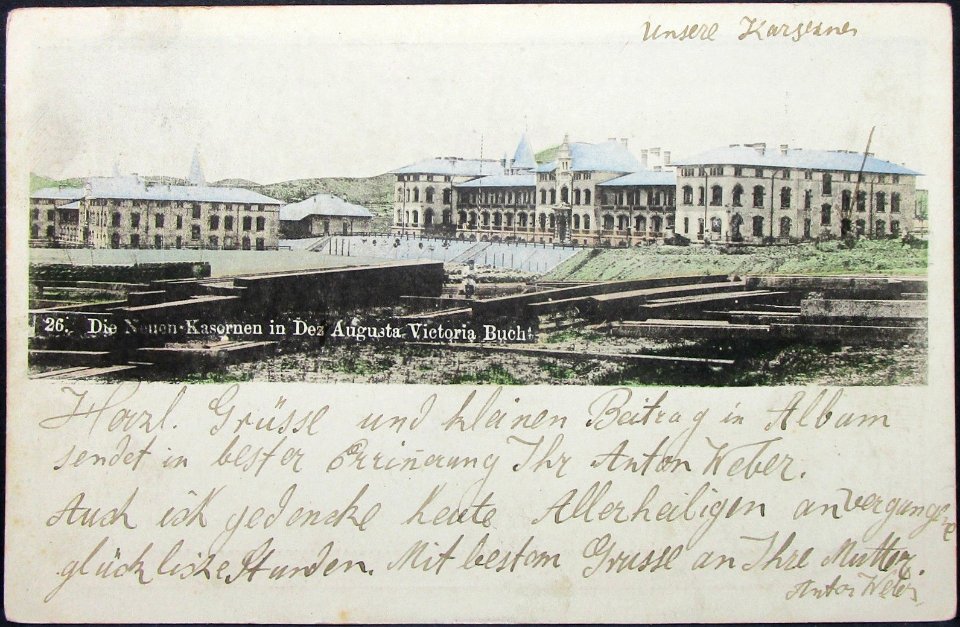 Unsere Kasernen
26. Die Neuen Kasornen in Dez Augusta Victoria Bucht
Herzl. Grüsse und kleinen Beitrag in Album
sendet in bester Erinn̄erung Ihr Anton Weber.
Auch ich gedencke heute Allerheiligen an vergangene
glückliche Stunden. Mit bestem Grusse an Ihre Mutter.
Anton Weber